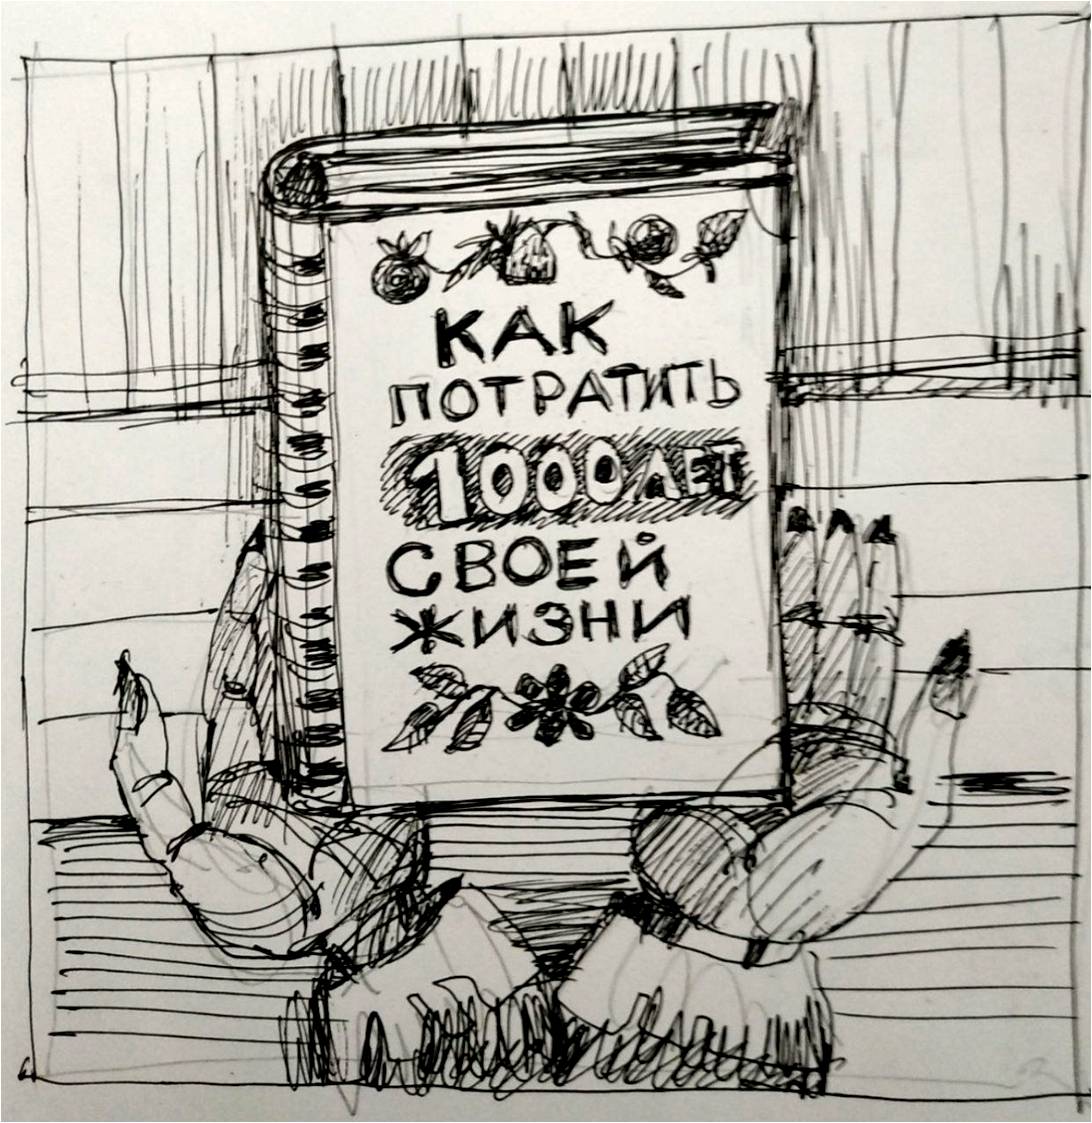 КАК
ПОТРАТИТЬ
1000 ЛЕТ
СВОЕЙ
ЖИЗНИ